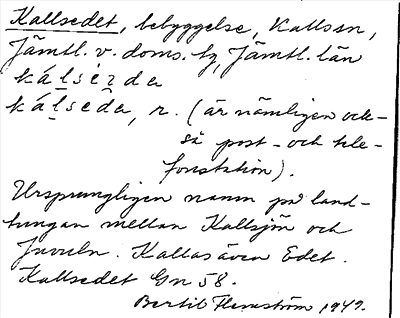 Kallsedet, bebyggelse, Kallssn,
Jämtl. v. doms. hg, Jämtl. län
kálsèzda
kálseda, n. (är nämligen ock-
så post- och tele-
fonstation).
Ursprungligen namn på land-
tungan mellan Kallsjön och
Juveln. Kallas även Edet.
Kallsedet Gn 58.
Bertil Flemström 1949.